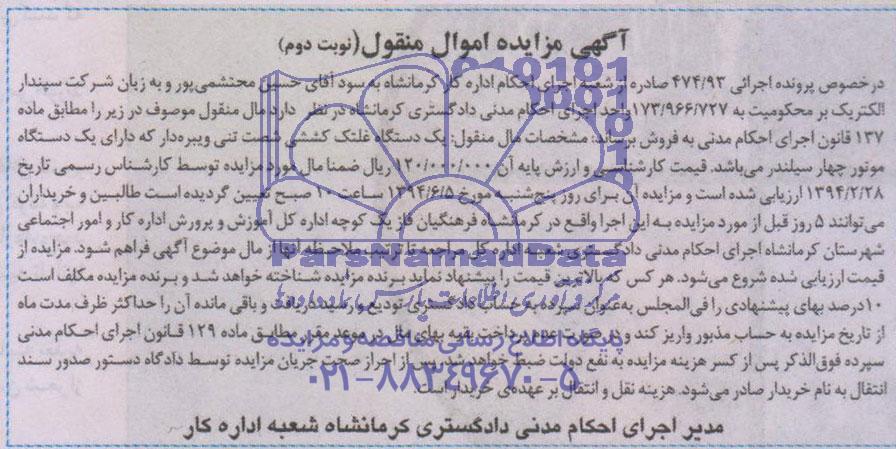 آگهی مزایده اموال منقول(نوبت دوم)
درخصوص پرونده اجرائی ۴۷۴/۹۳ صادره از شعبه اجرای احکام اداره کار کرمانشاه به سود آقای حسین محتشمی‌پور و به زیان شرکت سپندار
الکتریک بر محکومیت به ۱۷۳/۹۶۶/۷۲۷ واحد اجرای احکام مدنی دادگستری کرمانشاه در نظر دارد مال منقول موصوف در زیر را مطابق ماده
۱۳۷ قانون اجرای احکام مدنی به فروش برساند: مشخصات مال منقول: یک دستگاه غلتک کششی شصت تنی ویبره‌دار که دارای یک دستگاه
موتور چهار سیلندر می‌باشد. قیمت کارشناسی و ارزش پایه آن ۱۲۰/۰۰۰/۰۰۰ ریال ضمنا مال مورد مزایده توسط کارشناس رسمی تاریخ
۱۳۹۴/۲/۲۸ ارزیابی شده است و مزایده آن برای روز پنج‌شنبه مورخ ۱۳۹۴/۶/۵ ساعت ۱۰ صبح تعیین گردیده است طالبین و خریداران
می‌توانند ۵ روز قبل از مورد مزایده به این اجرا واقع در کرمانشاه فرهنگیان فاز یک کوچه اداره کل آموزش و پرورش اداره کار و امور اجتماعی
شهرستان کرمانشاه اجرای احکام مدنی دادگستری شعبه اداره کار مراجعه تا ترتیب ملاحظه آنها از مال موضوع آگهی فراهم شود. مزایده از
قیمت ارزیابی شده شروع می‌شود. هر کس که بالاترین قیمت را پیشنهاد نماید برنده مزایده شناخته خواهد شد و برنده مزایده مکلف است
۱۰درصد بهای پیشنهادی را فی‌المجلس به‌عنوان سپرده به حساب دادگستری تودیع و رسید دریافت و باقی مانده آن را حداکثر ظرف مدت ماه
از تاریخ مزایده به حساب مذبور واریز کند و در صورت عدم پرداخت بقیه بهای مال در موعد مقرر مطابق ماده ۱۲۹ قانون اجرای احکام مدنی
سپرده فوق‌الذکر پس از کسر هزینه مزایده به نفع دولت ضبط خواهد شد. پس از احراز صحت جریان مزایده توسط دادگاه دستور صدور سند
انتقال به نام خریدار صادر می‌شود. هزینه نقل و انتقال بر عهده‌ی خریدار است.
مدیر اجرای احکام مدنی دادگستری کرمانشاه شعبه اداره کار
ParsNamadData
پایگاه اطلاع رسانی مناقصه و مزایده
۰۲۱-۸۸۳۴۹۶۷۰-۵